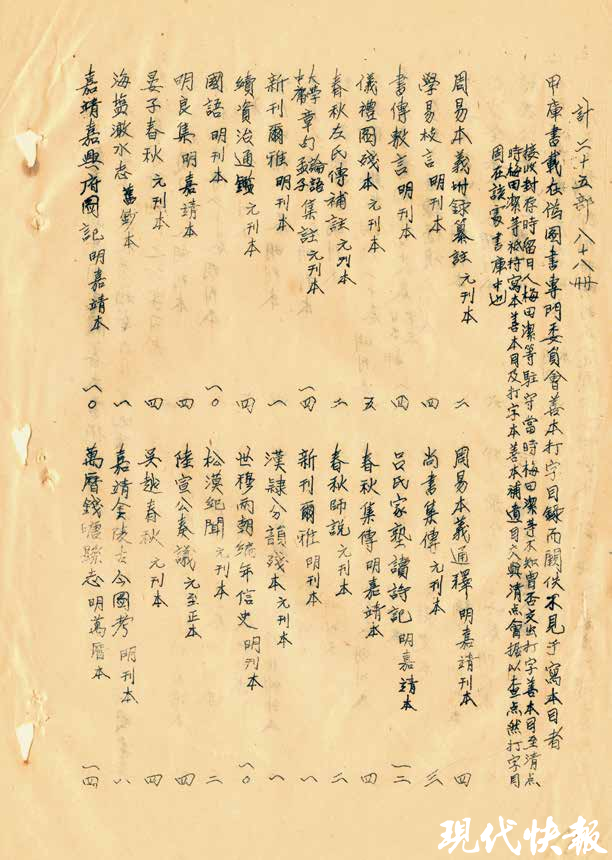 計二十五部八十八冊
甲庫書載在偽圖書專門委員會善本打字目錄而闕佚不見于寫本目者
接收封存時留日人梅田潔等駐守當時梅田潔等不知曾否交出打字善本目至清点
時梅田潔等祇持寫本善本目及打字本善本補遺目交與清点會據以查点然打字目
固在該家書庫中也
周易本義附錄纂註 元刊本 二
周易本義通釋 明嘉靖刊本 四
學易枝言 明刊本 四
尚書集傳 元刊本 三
書傳敷言 明刊本 四
呂氏家塾讀詩記 明嘉靖本 一二
儀禮圖殘本 元刊本 五
春秋集傳 明嘉靖本 四
春秋左氏傳補註 元刊本 二
春秋師說 元刊本 二
大學中庸章句論語孟子集註 元刊本 一四
新刊爾雅 明刊本 八
新刊爾雅 明刊本 八
漢隸分韻殘本 元刊本 一
續資治通鑑 元刊本 四
世穆兩朝編年信史 明刊本 一〇
國語 明刊本 一〇
松漠紀聞 元刊本 二
明良集 明嘉靖本 四
陸宣公奏議 元至正本 四
晏子春秋 元刊本 四
吳越春秋 元刊本 四
海鹽澉水志 舊鈔本 一
嘉靖金陵古今圖考 明刊本 八
嘉靖嘉興府圖記 明嘉靖本 一〇
萬曆錢塘縣志 明萬曆本 一四
現代快報